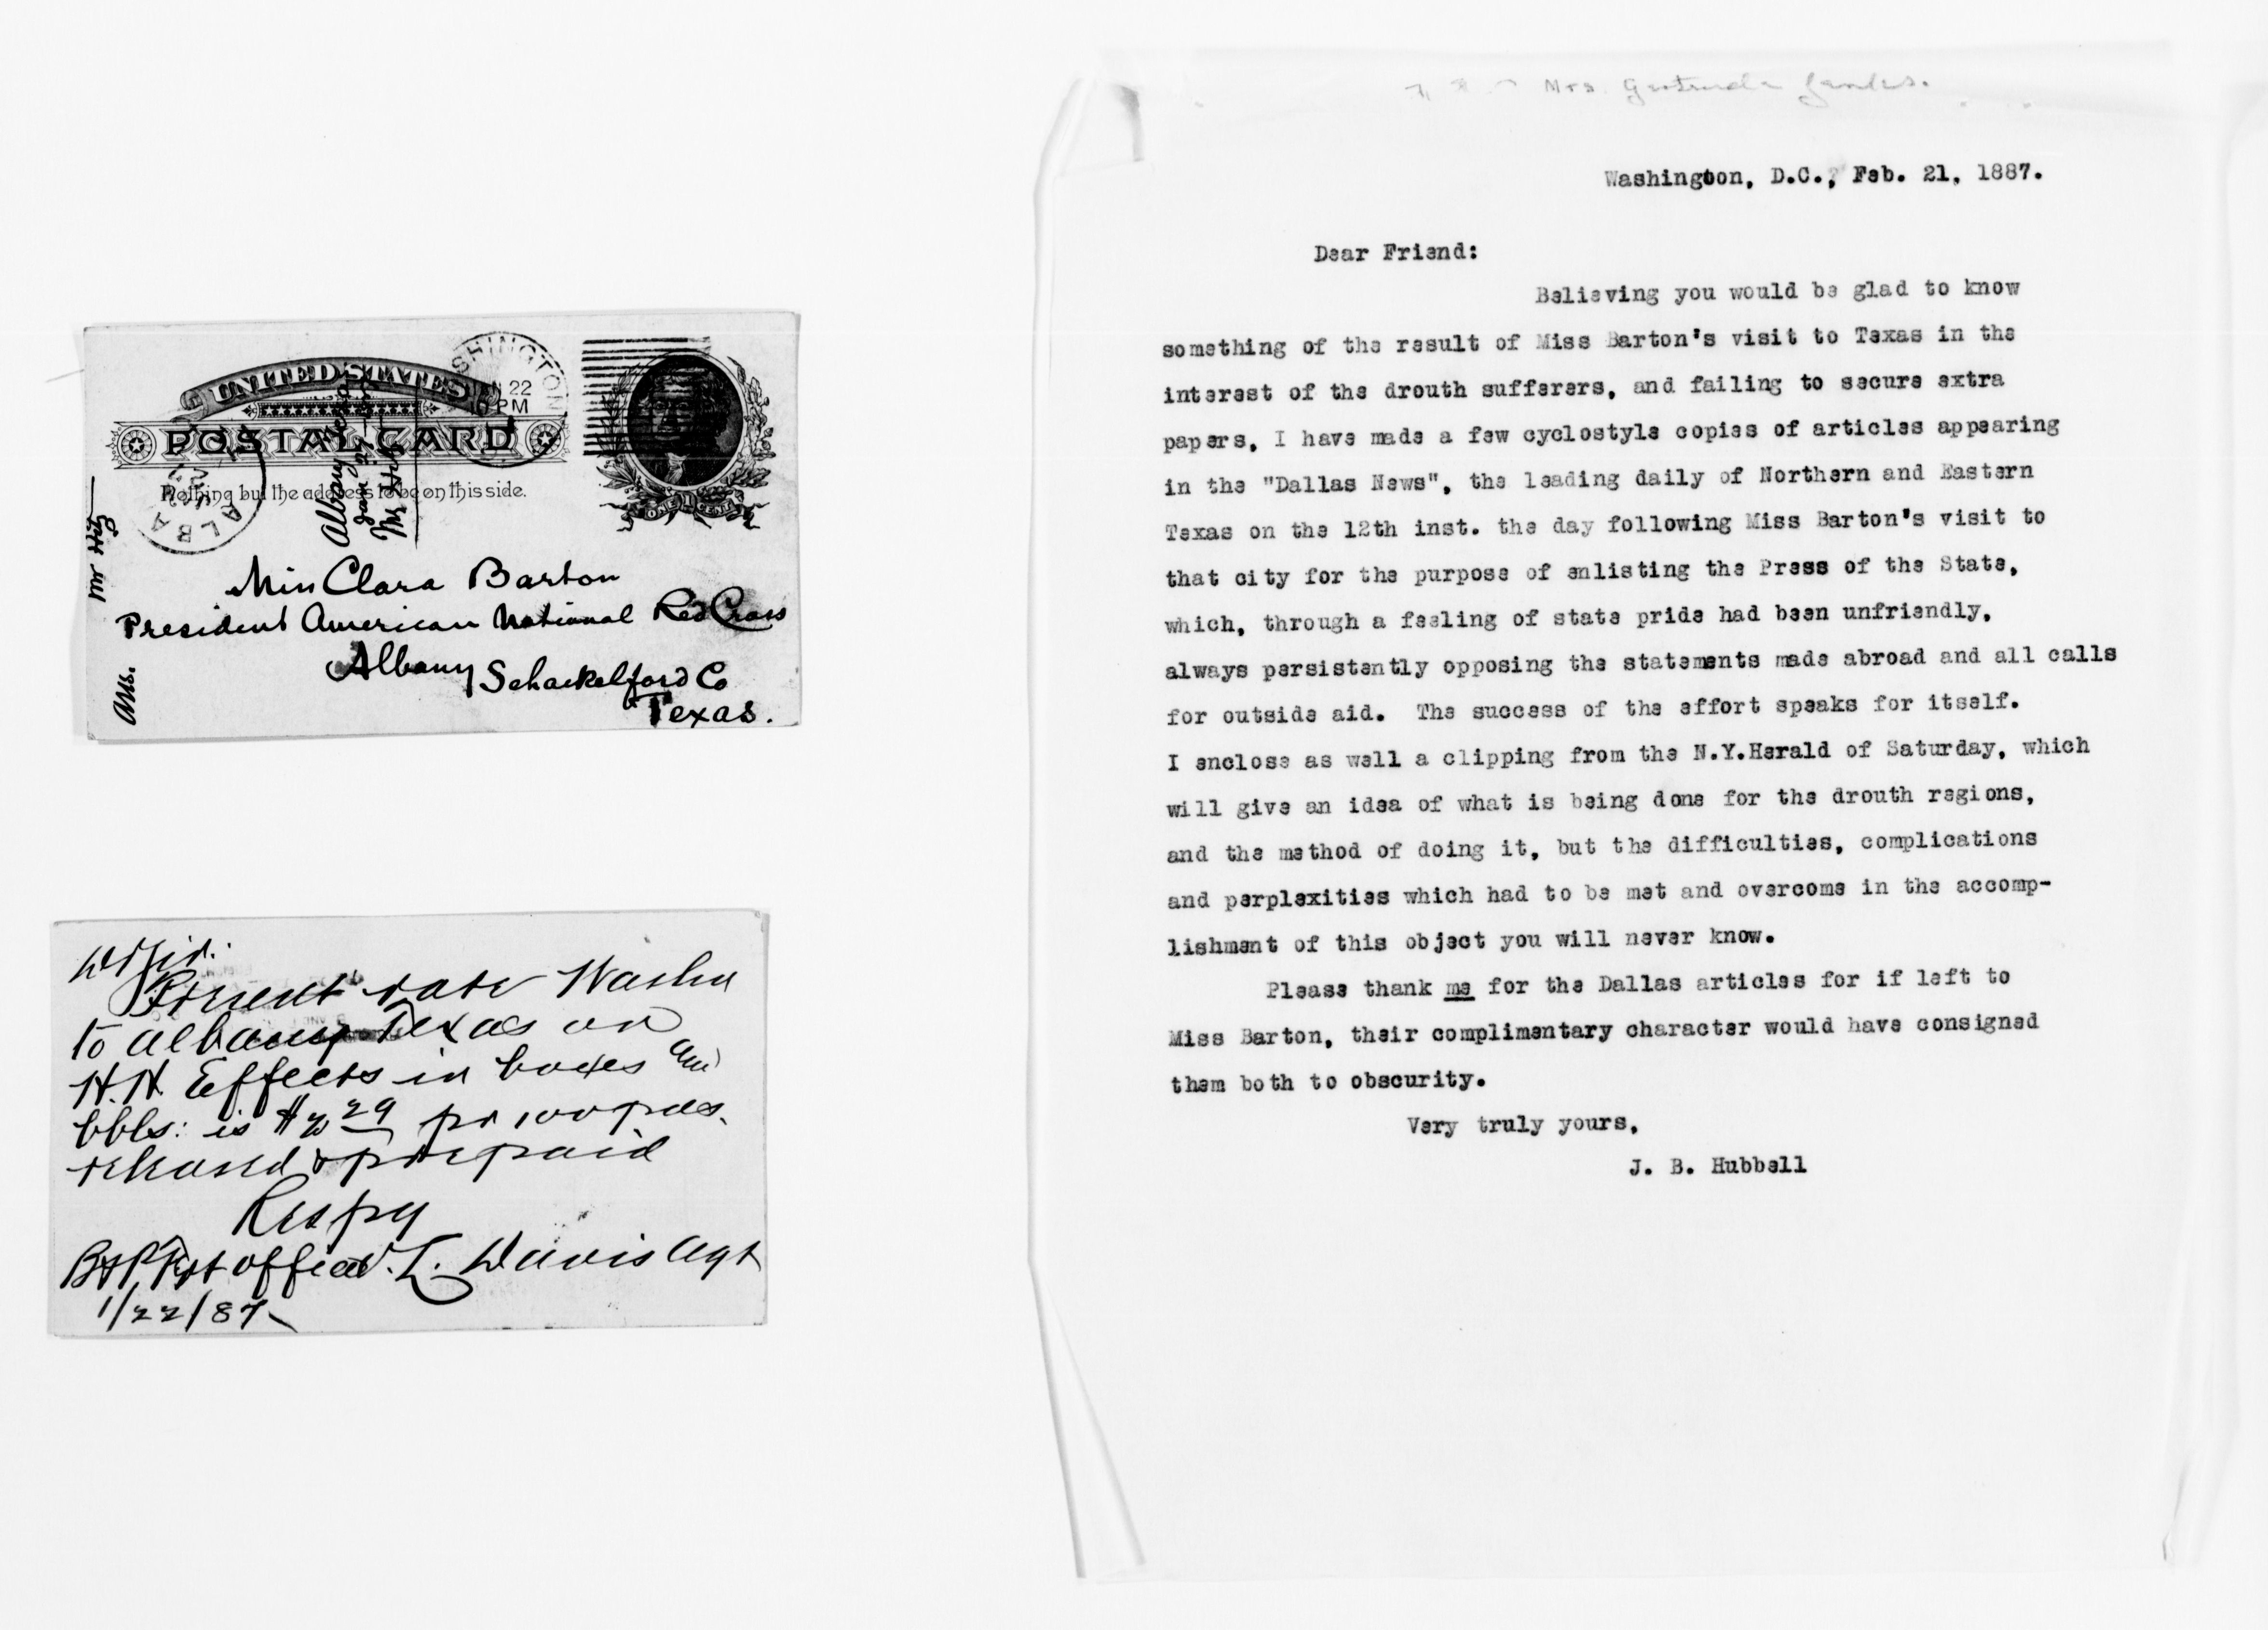 UNITED STATES
POSTAL CARD
Nothing but the address to be on this side.
ONE CENT
WASHINGTON
JAN 22
10 PM
ALBA
Albany Texas
Jan
Mr Hub
Miss Clara Barton
President American National Red Cross
Albany Schackelford Co
Texas.
Ans.
Dr Sir:
Present rate Washn
to Albany Texas on
H.H. Effects in boxes and
bbls: is $2 29 pr 100 pds.
released & prepaid
Respy
B&P Frt office L. Davis Agt
1/22/87
Mrs. Gertrude
Washington, D.C., Feb. 21, 1887.
Dear Friend:
Believing you would be glad to know
something of the result of Miss Barton's visit to Texas in the
interest of the drouth sufferers, and failing to secure extra
papers, I have made a few cyclostyle copies of articles appearing
in the "Dallas News", the leading daily of Northern and Eastern
Texas on the 12th inst. the day following Miss Barton's visit to
that city for the purpose of enlisting the Press of the State,
which, through a feeling of state pride had been unfriendly,
always persistently opposing the statements made abroad and all calls
for outside aid. The success of the effort speaks for itself.
I enclose as well a clipping from the N.Y.Herald of Saturday, which
will give an idea of what is being done for the drouth regions,
and the method of doing it, but the difficulties, complications
and perplexities which had to be met and overcome in the accomp-
lishment of this object you will never know.
Please thank me for the Dallas articles for if left to
Miss Barton, their complimentary character would have consigned
them both to obscurity.
Very truly yours,
J. B. Hubbell